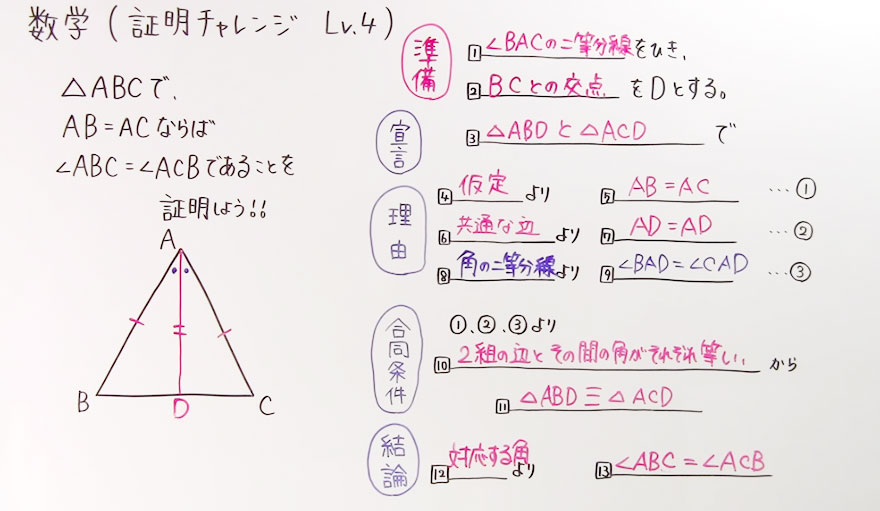 数学(証明チャレンジ Lv.4)
△ABCで、
AB=ACならば
∠ABC=∠ACBであることを
証明しよう!!
A
B
D
C
準備
1 ∠BACの二等分線をひき、
2 BCとの交点をDとする。
宣言
3 △ABDと△ACDで
理由
4 仮定より 5 AB=AC …①
6 共通な辺より 7 AD=AD …②
8 角の二等分線より 9 ∠BAD=∠CAD …③
合同条件
①、②、③より
10 2組の辺とその間の角がそれぞれ等しい。から
11 △ABD≡△ACD
結論
12 対応する角より 13 ∠ABC=∠ACB